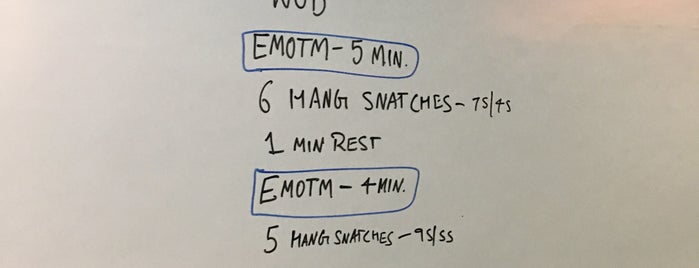 WOD
EMOTM - 5 MIN.
6 HANG SNATCHES - 75/45
1 MIN REST
EMOTM - 4 MIN.
5 HANG SNATCHES - 95/55